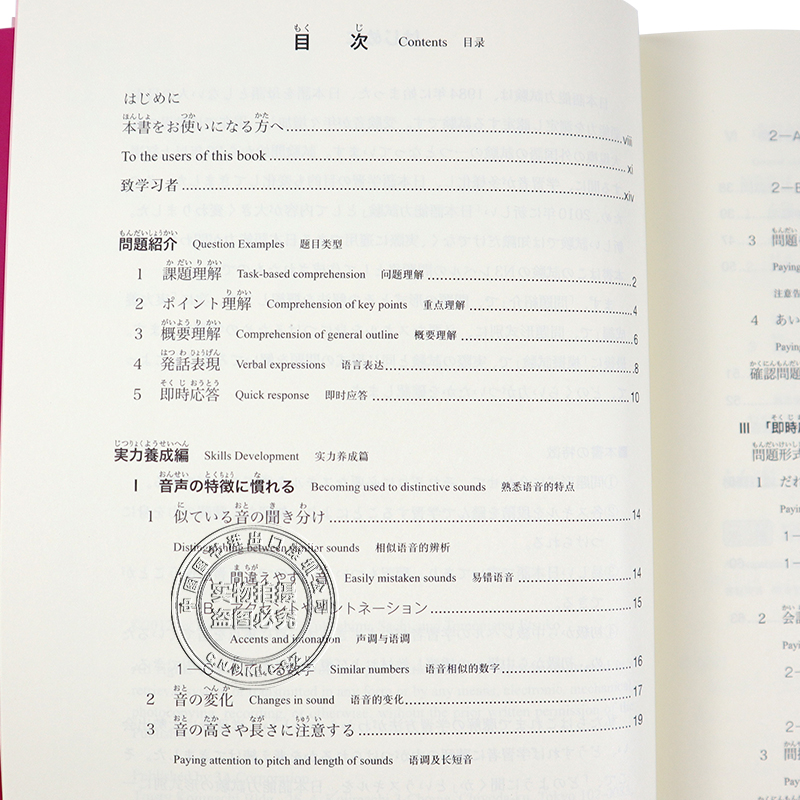 目次 Contents 目录
はじめに
本書をお使いになる方へ……viii
To the users of this book……xi
致学习者……xiv
問題紹介 Question Examples 题目类型
1 課題理解 Task-based comprehension 问题理解……2
2 ポイント理解 Comprehension of key points 重点理解……4
3 概要理解 Comprehension of general outline 概要理解……6
4 発話表現 Verbal expressions 语言表达……8
5 即時応答 Quick response 即时应答……10
実力養成編 Skills Development 实力养成篇
I 音声の特徴に慣れる Becoming used to distinctive sounds 熟悉语音的特点
1 似ている音の聞き分け……14
Distinguishing between similar sounds 相似语音的辨析
間違えやす Easily mistaken sounds 易错语音……14
イントネーション……15
Accents and intonation 声调与语调
1－C 似ている数字 Similar numbers 语音相似的数字……16
2 音の変化 Changes in sound 语音的变化……17
3 音の高さや長さに注意する……19
Paying attention to pitch and length of sounds 语调及长短音
实物拍摄
盗图必究
2－A
2－B
3 問題
Paying
注意告
4 あい
Paying
確認問題
III 「即時
問題形式
1 だれ
Paying
1－
1－
2 会話
Payi
2－
2－
3 問
Payi